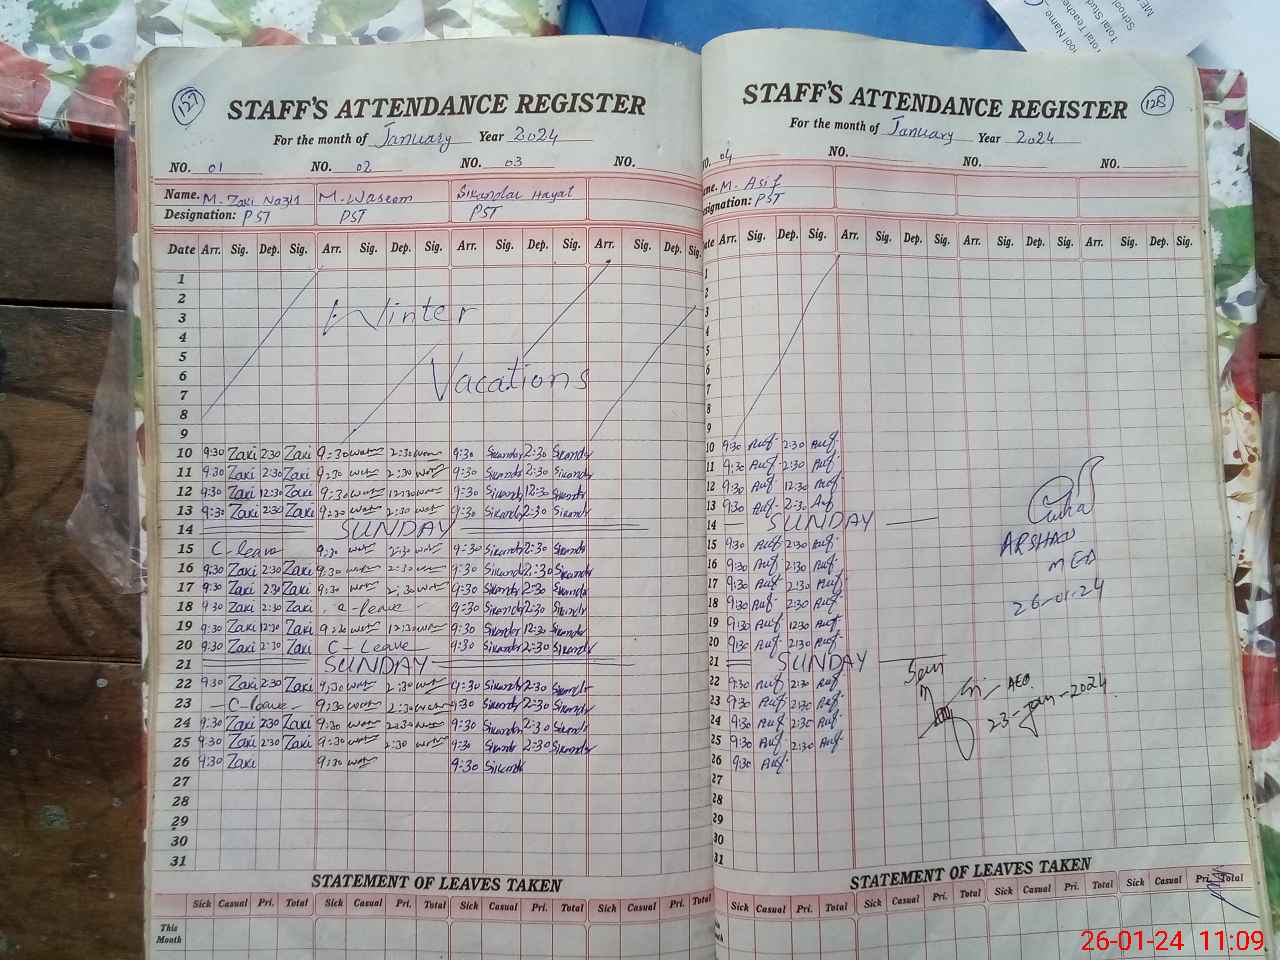 157
STAFF'S ATTENDANCE REGISTER
For the month of January Year 2024
NO. 01 NO. 02 NO. 03 NO.
Name. M. Zaki Nazir M. Waseem Sikandar Hayat
Designation: PST PST PST
Date Arr. Sig. Dep. Sig. Arr. Sig. Dep. Sig. Arr. Sig. Dep. Sig. Arr. Sig. Dep. Sig.
1
2
3 Winter
4
5
6 Vacations
7
8
9
10 9:30 Zaki 2:30 Zaki 9:30 2:30 9:30 Sikandr 2:30 Sikandr
11 9:30 Zaki 2:30 Zaki 9:30 2:30 9:30 Sikandr 2:30 Sikandr
12 9:30 Zaki 12:30 Zaki 9:30 12:30 9:30 Sikandr 12:30 Sikandr
13 9:30 Zaki 2:30 Zaki 9:30 2:30 9:30 Sikandr 2:30 Sikandr
14 SUNDAY
15 C-leave 9:30 2:30 9:30 Sikandr 2:30 Sikandr
16 9:30 Zaki 2:30 Zaki 9:30 2:30 9:30 Sikandr 2:30 Sikandr
17 9:30 Zaki 2:30 Zaki 9:30 2:30 9:30 Sikandr 2:30 Sikandr
18 9:30 Zaki 2:30 Zaki 9:30 Sikandr 2:30 Sikandr
19 9:30 Zaki 12:30 Zaki 9:30 12:30 9:30 Sikandr 12:30 Sikandr
20 9:30 Zaki 2:30 Zaki C-Leave 9:30 Sikandr 2:30 Sikandr
21 SUNDAY
22 9:30 Zaki 2:30 Zaki 9:30 2:30 9:30 Sikandr 2:30 Sikandr
23 C-leave 9:30 2:30 9:30 Sikandr 2:30 Sikandr
24 9:30 Zaki 2:30 Zaki 9:30 2:30 9:30 Sikandr 2:30 Sikandr
25 9:30 Zaki 2:30 Zaki 9:30 2:30 9:30 Sikandr 2:30 Sikandr
26 9:30 Zaki 9:30 9:30 Sikandr
27
28
29
30
31
STATEMENT OF LEAVES TAKEN
Sick Casual Pri. Total Sick Casual Pri. Total Sick Casual Pri. Total Sick Casual Pri.
This
Month
128
STAFF'S ATTENDANCE REGISTER
For the month of January Year 2024
NO. 04 NO. NO. NO.
ame. M. Asif
esignation: PST
ate Arr. Sig. Dep. Sig. Arr. Sig. Dep. Sig. Arr. Sig. Dep. Sig. Arr. Sig. Dep. Sig.
1
2
3
4
5
6
7
8
9
10 9:30 2:30
11 9:30 2:30
12 9:30 12:30
13 9:30 2:30
14 SUNDAY
15 9:30 2:30
16 9:30 2:30
17 9:30 2:30
18 9:30 2:30
19 9:30 12:30
20 9:30 2:30
21 SUNDAY
22 9:30 2:30
23 9:30 2:30
24 9:30 2:30
25 9:30 2:30
26 9:30
27
28
29
30
31
ARSHAD
MEA
26-01-24
Seen
AEO
23-Jan-2024
STATEMENT OF LEAVES TAKEN
Sick Casual Pri. Total Sick Casual Pri. Total Sick Casual Pri. Total Sick Casual Pri. Total
School
Total Stud
Total Teache
ool Name
26-01-24 11:09